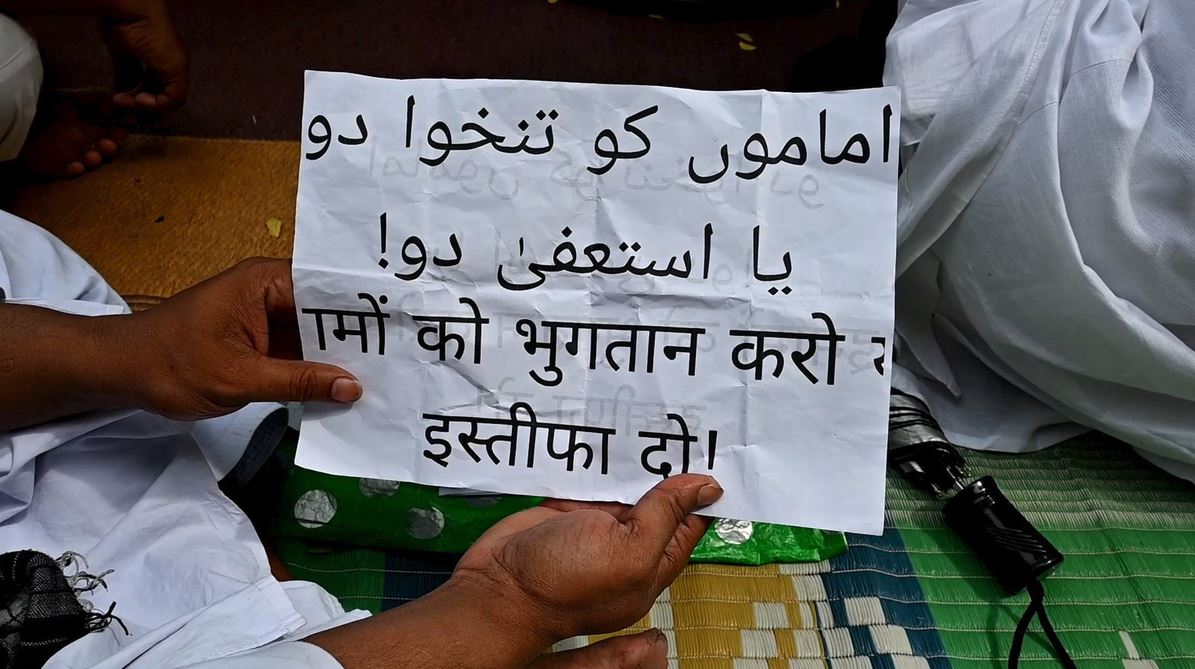 اماموں کو تنخوا دو
یا استعفیٰ دو!
ामों को भुगतान करो
इस्तीफा दो!